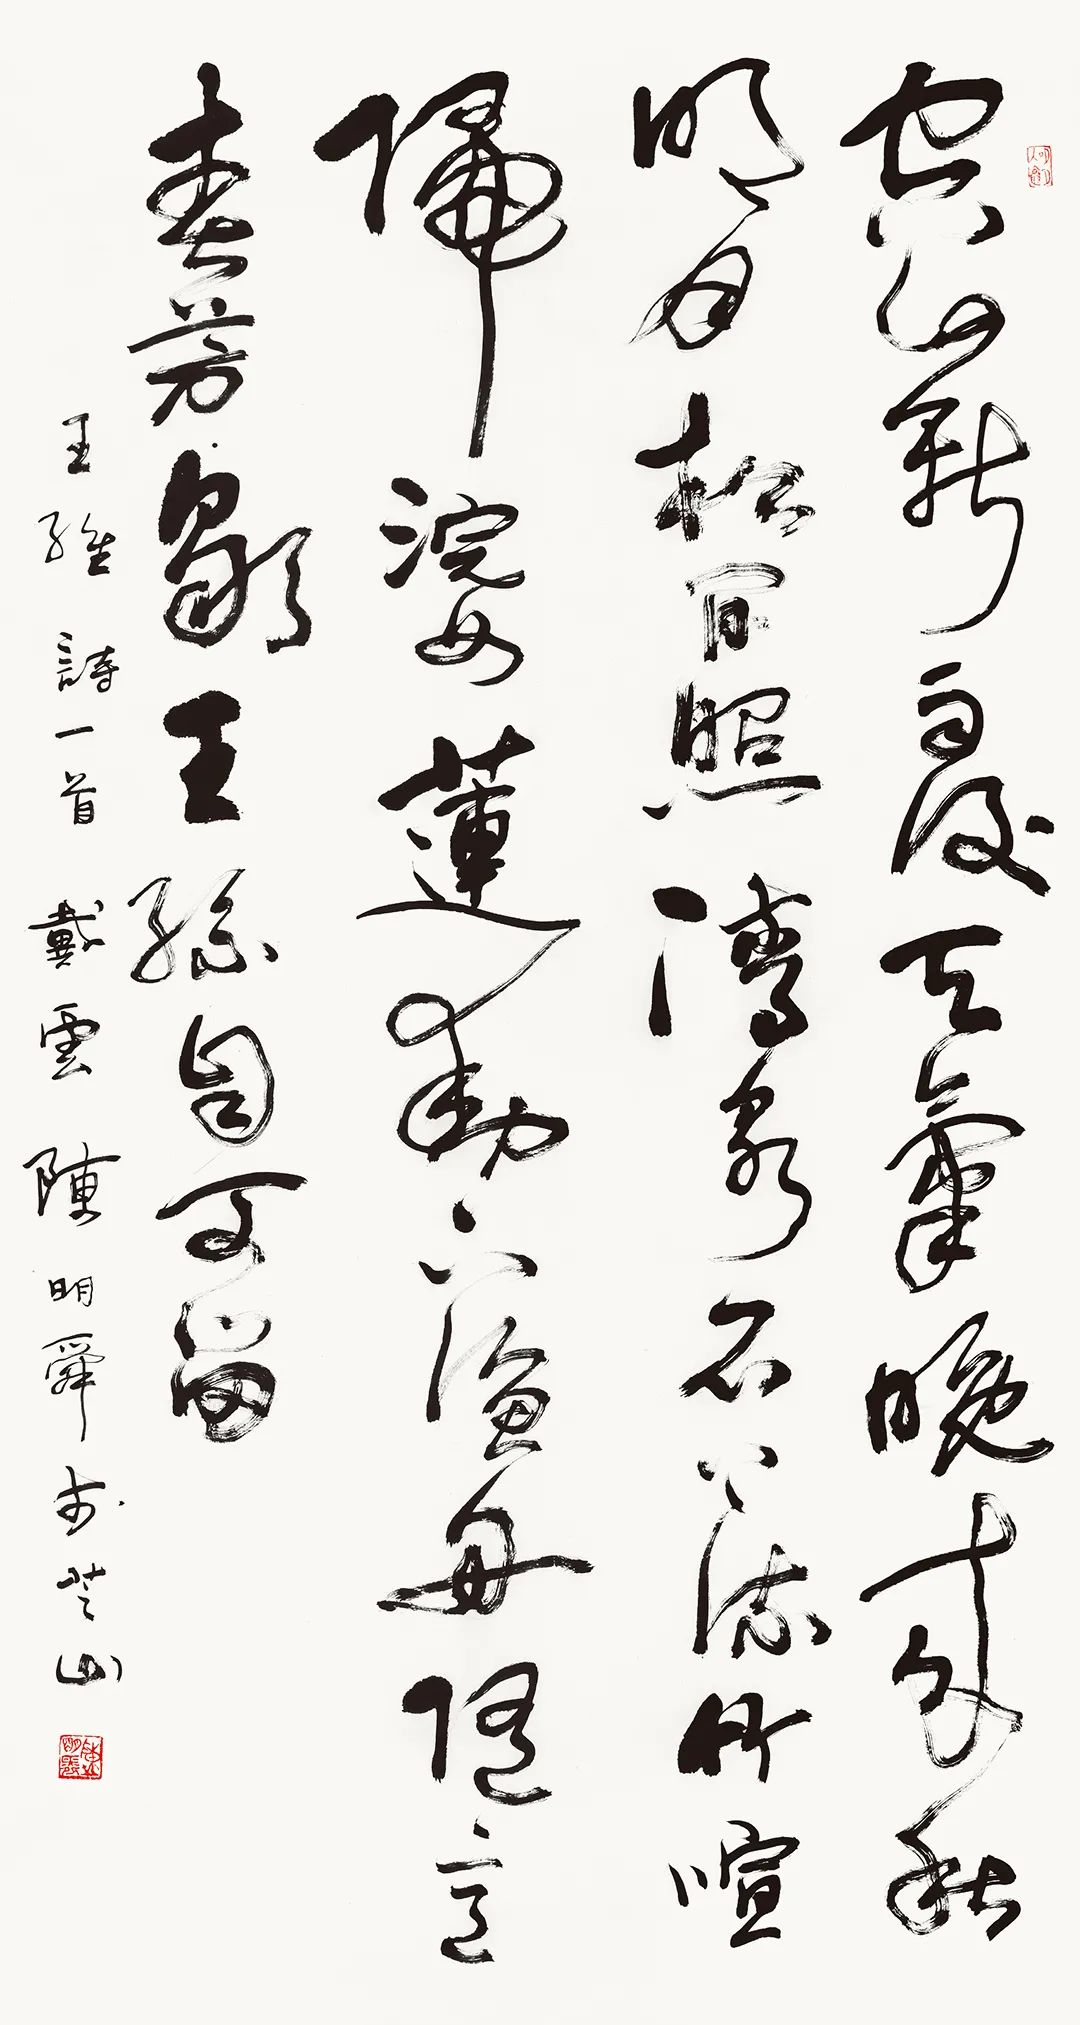 空山新雨後天氣晚來秋
明月松間照清泉石上流竹喧
歸浣女蓮動下漁舟隨意
春芳歇王孫自可留
王維詩一首 戴雲 陳明舜於芝山